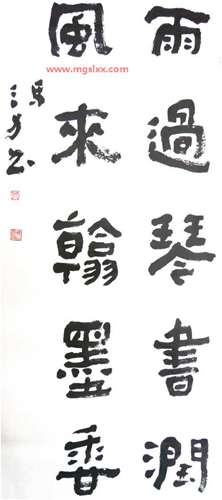 雨過琴書潤
風來翰墨香
www.mgslxx.com